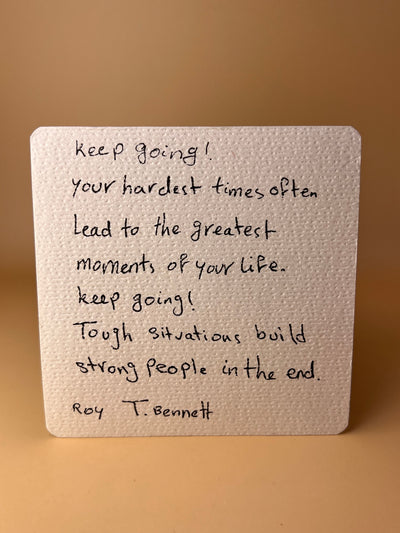 keep going!
your hardest times often
Lead to the greatest
moments of your Life.
keep going!
Tough situations build
strong People in the end.
Roy T. Bennett